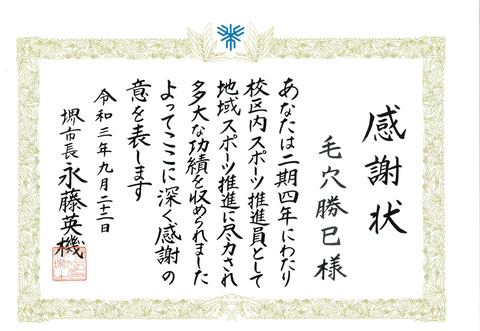 感謝状
毛穴勝巳様
あなたは二期四年にわたり
校区内スポーツ推進員として
地域スポーツ推進に尽力され
多大な功績を収められました
よってここに深く感謝の
意を表します
令和三年九月二十二日
堺市長 永藤英機